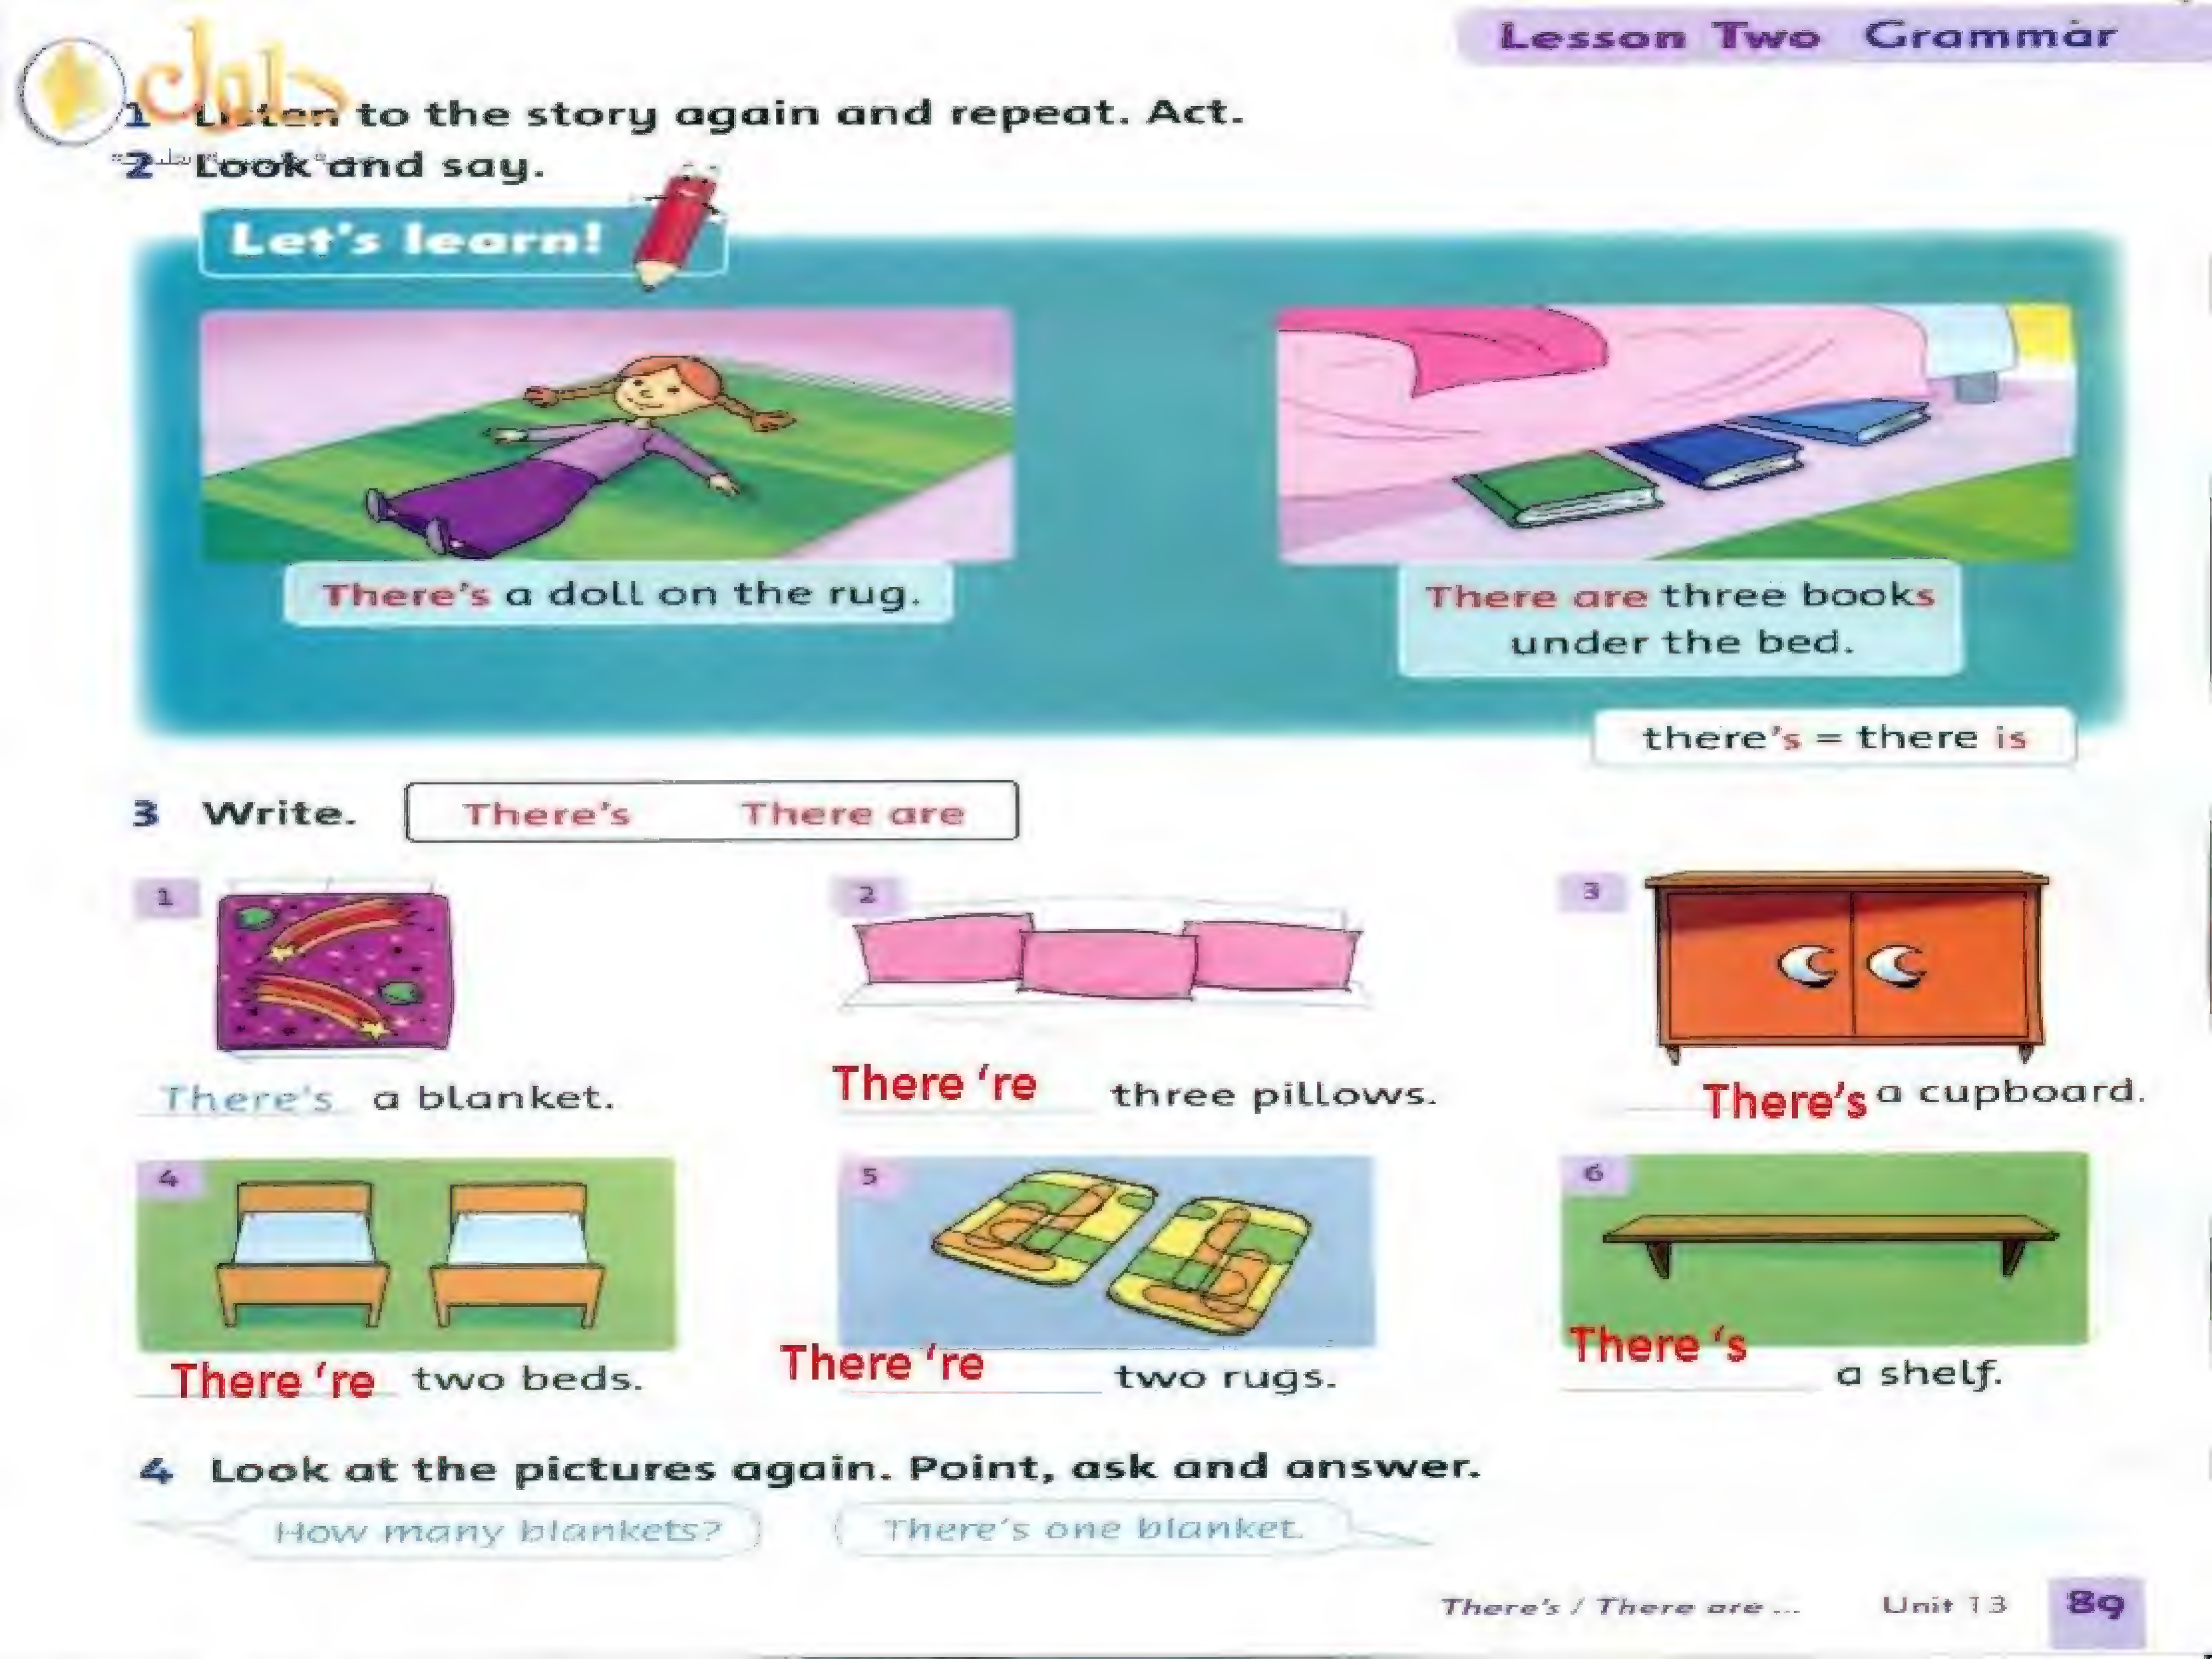 Lesson Two Grammar
حلول
1 Listen to the story again and repeat. Act.
2 Look and say.
Let's learn!
There's a doll on the rug.
There are three books
under the bed.
there's = there is
3 Write. There's There are
1
2
3
There's a blanket.
There 're three pillows.
There's a cupboard.
4
5
6
There 're two beds.
There 're two rugs.
There 's a shelf.
4 Look at the pictures again. Point, ask and answer.
How many blankets? There's one blanket.
There's / There are ... Unit 13 89